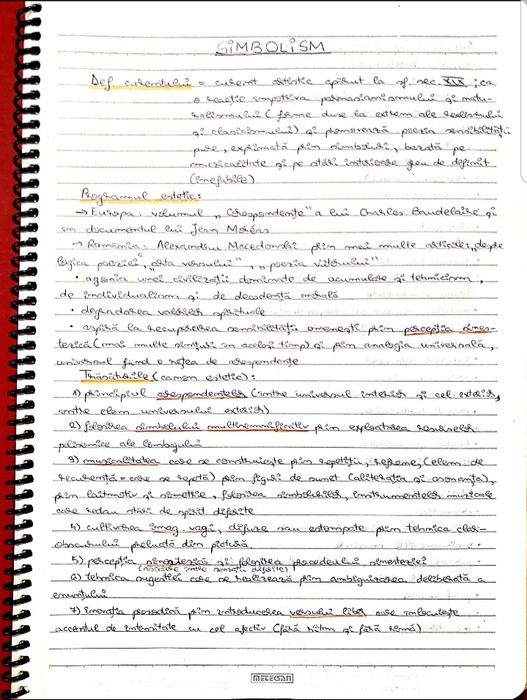 SIMBOLISM
Def curentului = curent artistic apărut la sf. sec. XIX ; ca
o reacție împotriva parnasianismului și natu-
ralismului (forme duse la extrem ale realismului
și clasicismului) și promovează poezia sensibilității
pure, exprimată prin simboluri, bazată pe
muzicalitate și pe stări interioare greu de definit
(inefabile)
Programul estetic:
→ Europa: volumul „Corespondențe" a lui Charles Baudelaire și
în documentul lui Jean Moréas
→ România: Alexandru Macedonski prin mai multe articole: „Despre
logica poeziei", „Arta versului", „Poezia viitorului"
• agonia unei civilizații dominate de acumulare și tehnicism,
de individualism și de decadență morală
• degradarea valorilor spirituale
• aspiră la recuperarea sensibilității omenești prin percepția sines-
tezică (mai multe simțuri în același timp) și prin analogia universală,
universul fiind o rețea de corespondențe
Trăsăturile (canon estetic):
1) principiul corespondențelor (între universul interior și cel exterior,
între elem. universului exterior)
2) folosirea simbolului multisemnificativ prin exploatarea resurselor
polisemice ale limbajului
3) muzicalitatea care se construiește prin repetiții, refrene, (elem. de
recurență = care se repetă) prin figuri de sunet (aliterația și asonanța),
prin laitmotiv și simetrie, folosirea simbolurilor, instrumentelor muzicale
care redau stări de spirit diferite
4) cultivarea imag. vagi, difuze sau estompate prin tehnica clar-
obscurului preluată din pictură
5) percepția sinestezică și folosirea procedeului sinesteziei
(asociere între senzații diferite)
6) tehnica sugestiei care se realizează prin ambiguizarea deliberată a
enunțului
7) inovația prozodică prin introducerea versului liber care înlocuiește
accentul de intensitate cu cel afectiv (fără ritm și fără rimă)